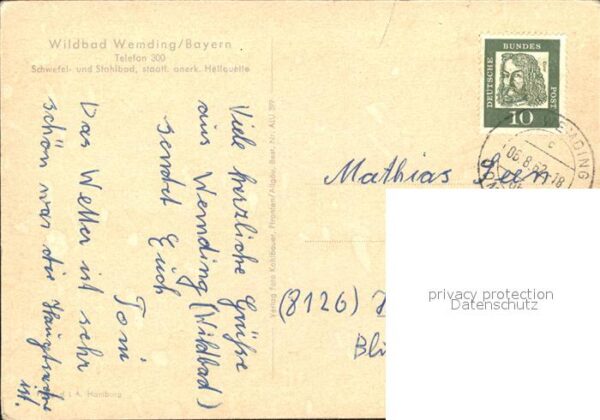 Wildbad Wemding/Bayern
Telefon 300
Schwefel- und Stahlbad, staatl. anerk. Heilquelle
Viele herzliche Grüße
aus Wemding (Wildbad)
sendet Euch
Toni
Das Wetter ist sehr
schön was die Hauptsache
ist.
Verlag Foto Kohlbauer, Pfronten/Allgäu, Best. Nr. ALU 899
i. A. Hamburg
DEUTSCHE
BUNDES
POST
10
WEMDING
c
06.8.62-18
Mathias Seen
(8126)
Bli
privacy protection
Datenschutz